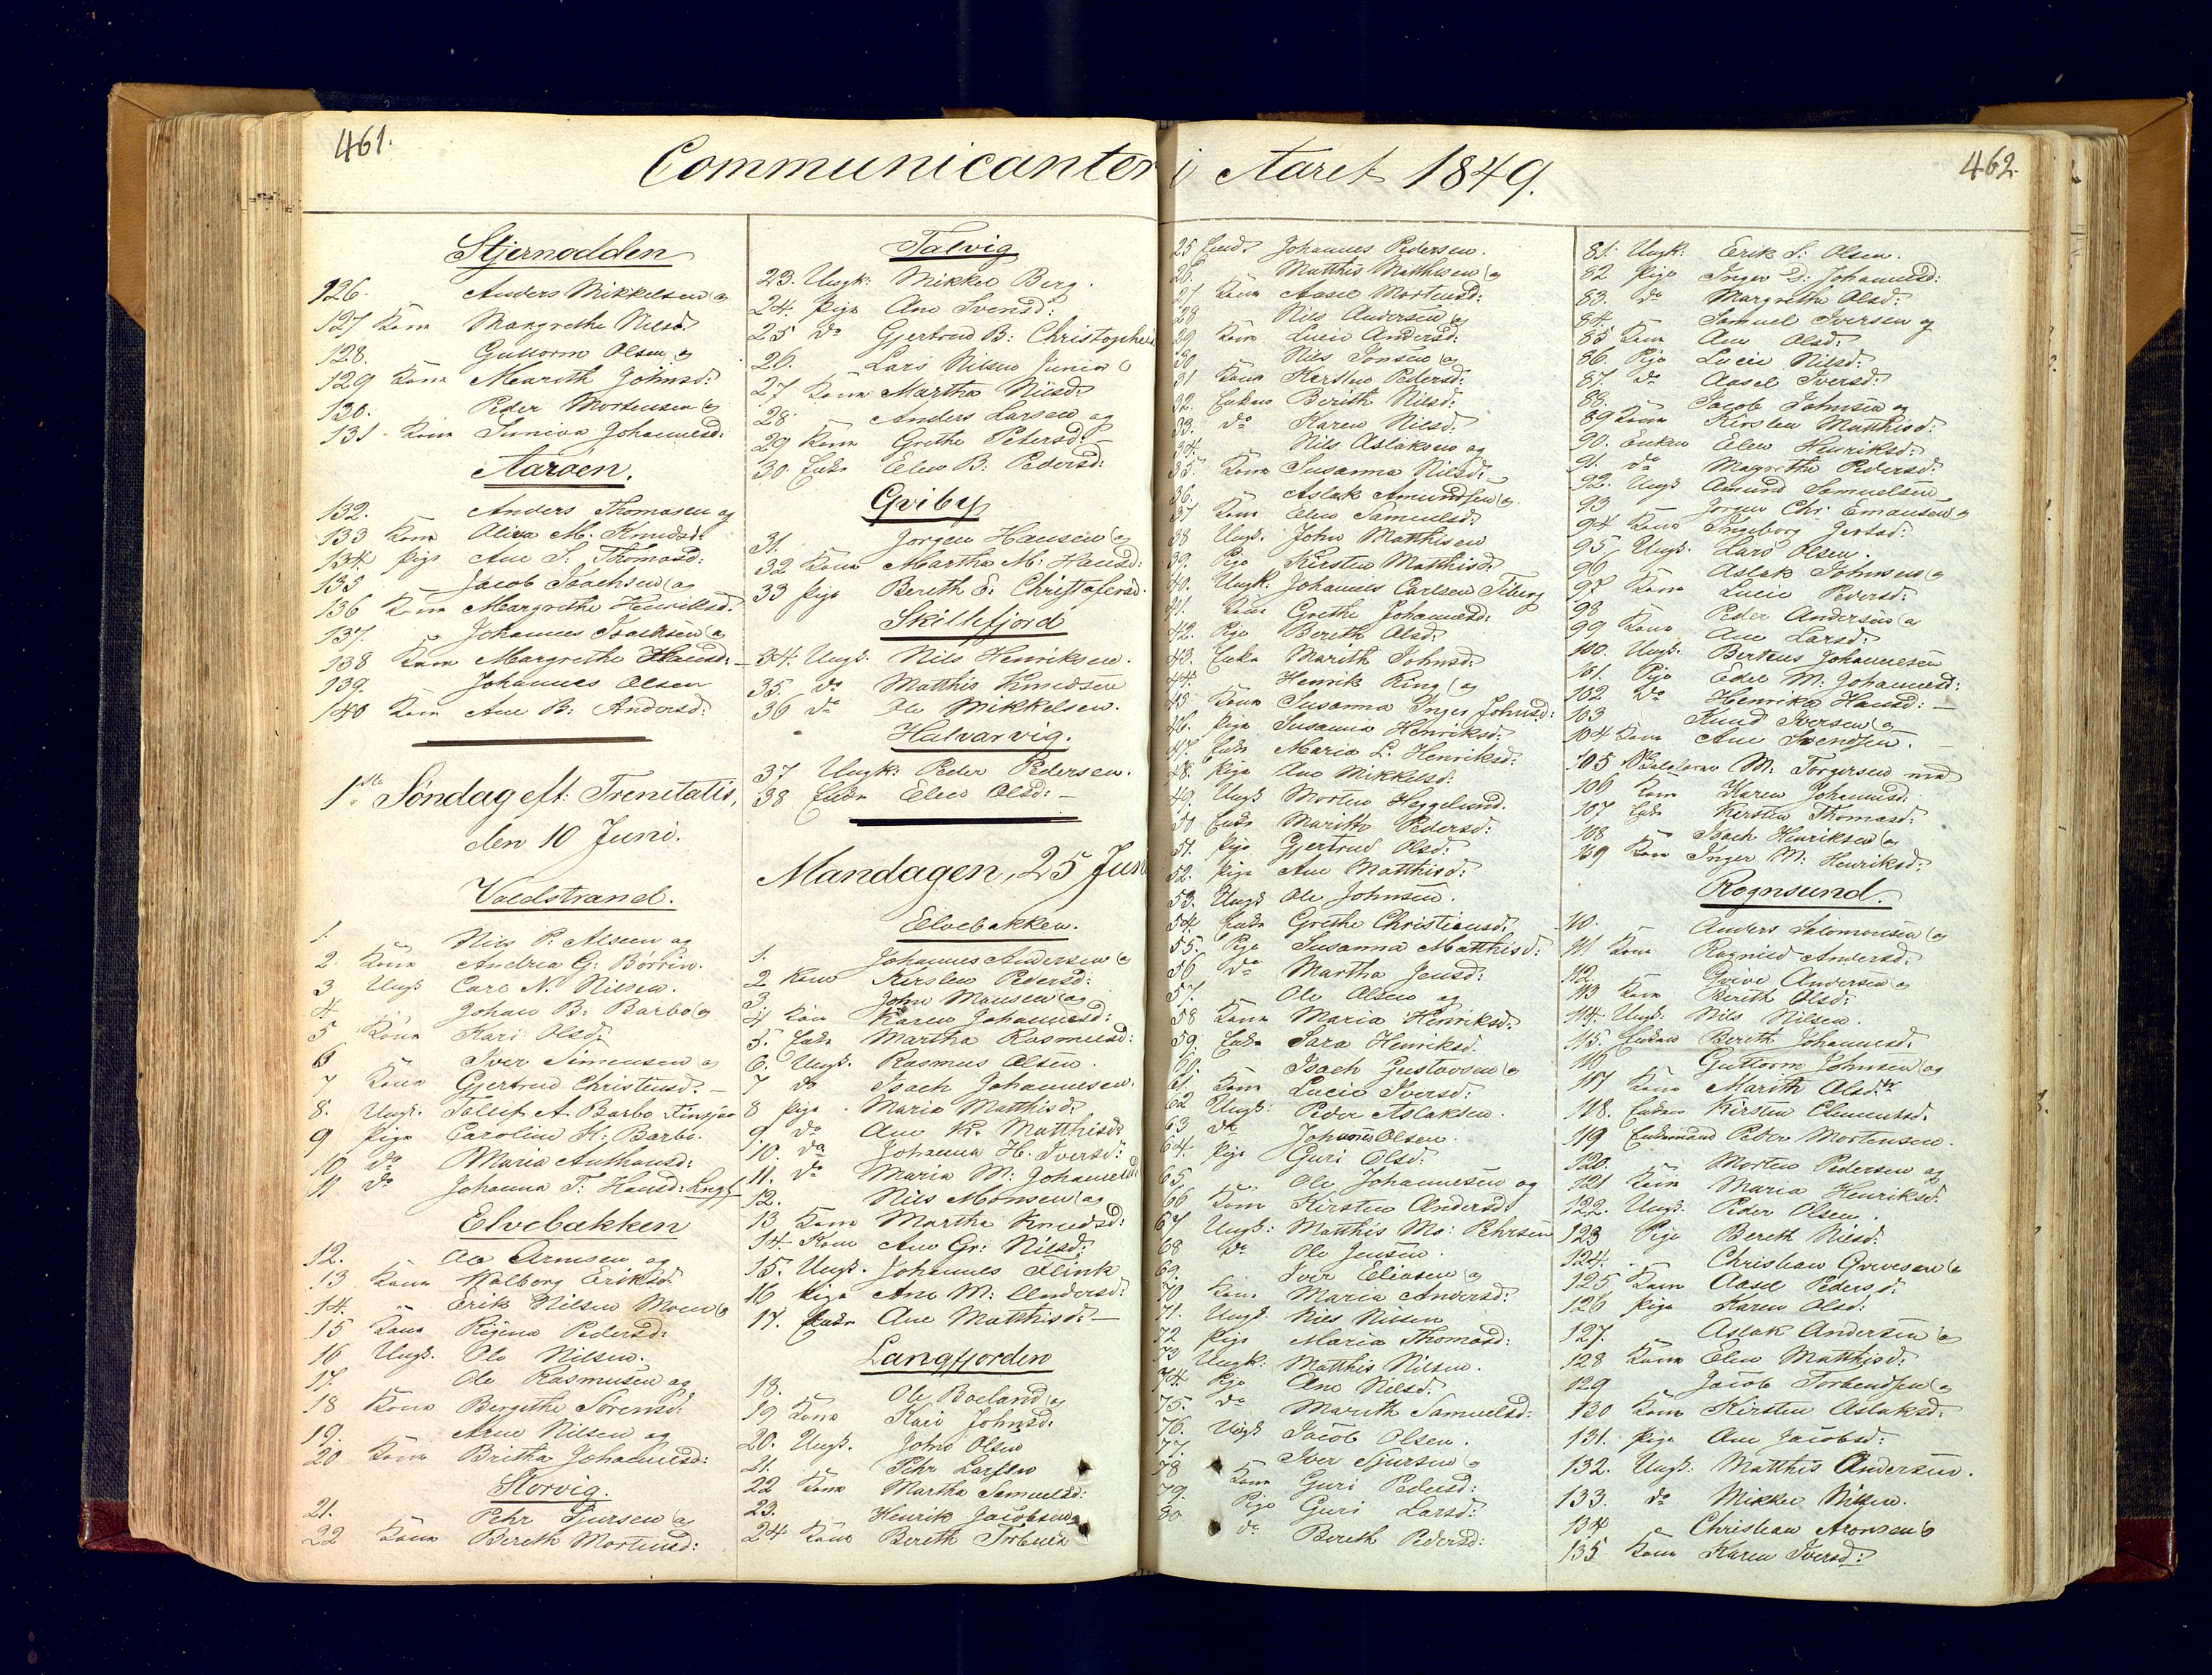 461.
Communicanter i Aaret 1849.
462.
Stjernodden
126. Anders Mikkelsen og
127 Kone Margrethe Nilsd.
128. Guttorm Olsen og
129 Kone Marith Johnsd:
130. Peder Mortensen og
131 Kone Suniva Johannesd:
Aaröen.
132. Anders Thomasen og
133 Kone Aliva M. Knudsd:
134 Pige Ane S. Thomasd:
135 Jacob Isachsen og
136 Kone Margrethe Henriksd.
137. Johannes Isachsen og
138 Kone Margrethe Hansd:
139. Johannes Olsen
140 Kone Ane B: Andersd:
1ste Søndag eft: Trenitatis,
den 10 Juni.
Voldstrand.
1. Nils P. Alseen og
2. Kone Andrea G: Börrin.
3 Ungk. Carl N. Nilsen.
4 Johan B. Barbo og
5 Kone Kari Olsd:
6 Iver Simensen og
7 Kone Gjertrud Christensd.
8. Ungk. Tollef A. Barbo
9 Pige Caroline K: Barbo.
10. do Maria Anthonsd:
11 do Johanna T: Hansd:
Elvebakken
12. Ole Arnesen og
13 Kone Walborg Eriksd.
14. Erik Nilsen Moen og
15 Kone Regina Pedersd:
16 Ungk. Ole Nilsen.
17. Ole Rasmusen og
18 Kone Bergithe Sörensd:
19. Arne Nilsen og
20 Kone Britha Johannesd:
Storvig.
21. Pehr Sjursen og
22 Kone Bereth Mortensd:
Talvig
23. Ungk: Mikkel Berg.
24. Pige Ane Svensd:
25 do Gjertrud B: Christophersd
26. Lars Nilsen Junior
27 Kone Martha Nilsd:
28. Anders Larsen og
29 Kone Grethe Pedersd:
30. Enke Elen B: Pedersd:
Qviby
31. Jörgen Hansen og
32 Kone Martha M: Hansd:
33 Pige Bereth E: Christofersd.
Skillefjord
34. Ungk. Nils Henriksen.
35. do Matthis Knudsen
36 do Ole Mikkelsen.
Halvarvig.
37 Ungk: Peder Pedersen.
38 Enke Elen Olsd:
Mandagen, 25 Jun
Elvebakken.
1. Johannes Andersen og
2 Kone Kirsten Pedersd:
3. John Monsen og
4 Kone Karen Johannesd:
5. Enke Martha Rasmusd:
6. Ungk. Rasmus Olsen.
7 do Isach Johannesen.
8 Pige Maria Matthisd:
9 do Ane K. Matthisd:
10. do Johanna H. Iversd:
11. do Maria M: Johannesd
12. Nils Monsen og
13. Kone Martha Knudsd:
14. Kone Ane Gr: Nilsd:
15. Ungk. Johannes Flink
16 Pige Ane M: Andersd:
17. Enke Ane Matthisd:
Langfjorden
18. Ole Boeland og
19 Kone Kari Johnsd:
20. Ungk. John Olsen
21. Pehr Larsen
22 Kone Martha Samuelsd:
23. Henrik Jacobsen og
24 Kone Bereth
25 Enkd. Johannes Pedersen.
26. Matthis Matthisen og
27 Kone Aasel Mortensd:
28 Nils Andersen og
29 Kone Lucie Andersd:
30 Nils Jonsen og
31 Kone Kersten Pedersd:
32. Enken Berith Nilsd:
33. do Karen Nilsd.
34. Nils Aslaksen og
35. Kone Susanna Nilsd:
36. Aslak Amundsen og
37 Kone Elen Samuelsd:
38 Ungk. John Matthisen
39. Pige Kirsten Matthisd:
40. Ungk: Johannes Carlsen Tiberg
41. Kone Grethe Johannesd:
42. Pige Bereth Olsd:
43. Enke Marith Johnsd:
44. Henrik Ring og
45 Kone Susanna Inger Johnsd:
46. Pige Susanna Henriksd:
47. Enke Maria L: Henriksd:
48. Pige Ane Mikkelsd:
49. Ungk Morten Heggelund.
50 Enke Marith Pedersd:
51. Pige Gjertrud Olsd:
52. Pige Ane Matthisd:
53. Ungk Ole Johnsen.
54 Enke Grethe Christiansd:
55. Pige Susanna Matthisd:
56 do Martha Jensd:
57. Ole Olsen og
58 Kone Maria Henriksd:
59. Enke Sara Henriksd.
60. Isach Gustavsen og
61. Kone Lucie Iversd:
62 Ungk: Peder Aslaksen.
63 do Johannes Olsen.
64. Pige Guri Olsd:
65. Ole Johannesen og
66 Kone Kirsten Andersd:
67 Ungk: Matthis Mo: Pehrsen
68 do Ole Jensen.
69. Iver Eliasen og
70 Kone Maria Andersd:
71. Ungk. Nils Nilsen
72 Pige Maria Thomasd:
73 Ungk: Matthis Nilsen.
74. Pige Ane Nilsd:
75. do Marith Samuelsd:
76. Ungk Jacob Olsen.
77. Iver Sjursen og
78 Kone Guri Pedersd:
79. Pige Guri Larsd:
80 do Bereth Pedersd:
81. Ungk: Erik S: Olsen.
82 Pige Inger D: Johannesd:
83. do Margrethe Olsd:
84. Samuel Iversen og
85 Kone Ane Olsd:
86. Pige Lucie Nilsd:
87. do Aasel Iversd:
88. Jacob Johnsen og
89 Kone Kirsten Matthisd:
90. Enken Elen Henriksd:
91. do Magrethe Pedersd:
92. Ungk Amund Samuelsen
93 Jörgen Chr: Emausen og
94 Kone Ingeborg Gertsd:
95. Ungk. Lars Olsen.
96 Aslak Johnsen og
97 Kone Lucie Pedersd:
98 Peder Andersen og
99 Kone Ane Larsd:
100. Ungk. Berteus Johannesen
101. Pige Edel M: Johannesd:
102 do Henrika Hansd:
103 Knud Iversen og
104 Kone Ane Svendsen.
105 M: Torgersen med
106 Kone Karen Johannesd:
107 Enke Kirsten Thomasd:
108 Isach Henriksen og
109 Kone Inger M: Henriksd:
Rognsund.
110. Anders Salomonsen og
111 Kone Ragnild Andersd:
112. Andersen og
113 Kone Bereth Olsd:
114. Ungk: Nils Nilsen.
115. Enken Bereth Johannesd:
116 Guttorm Johnsen og
117 Kone Marith Olsdtr
118. Enken Kirsten Clemensd:
119 Enkemand Peder Mortensen.
120. Morten Pedersen og
121 Kone Maria Henriksd:
122. Ungk. Peder Olsen.
123 Pige Bereth Nilsd:
124. Christian
125 Kone Aasel Pedersd:
126 Pige Karen Olsd:
127. Aslak Andersen og
128 Kone Elen Matthisd:
129 Jacob Torbendsen og
130 Kone Kirsten Aslaksd:
131. Pige Ane Jacobsd:
132. Ungk: Matthis Andersen.
133. do Mikkel Nilsen.
134 Christian Aronsen og
135 Kone Karen Iversd: